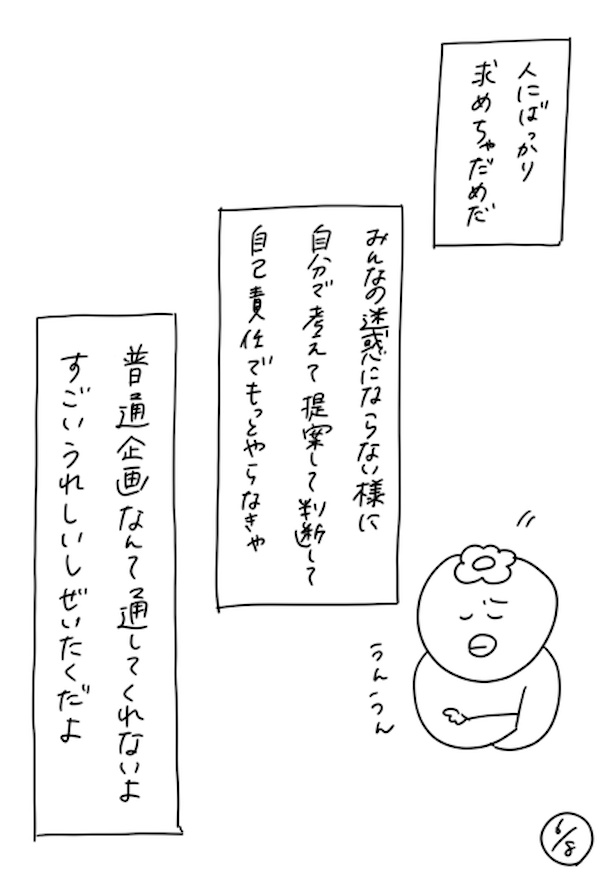 人にばっかり
求めちゃだめだ
みんなの迷惑にならない様に
自分で考えて提案して判断して
自己責任でもっとやらなきゃ
普通企画なんて通してくれないよ
すごいうれしいしぜいたくだよ
うんうん
6/8